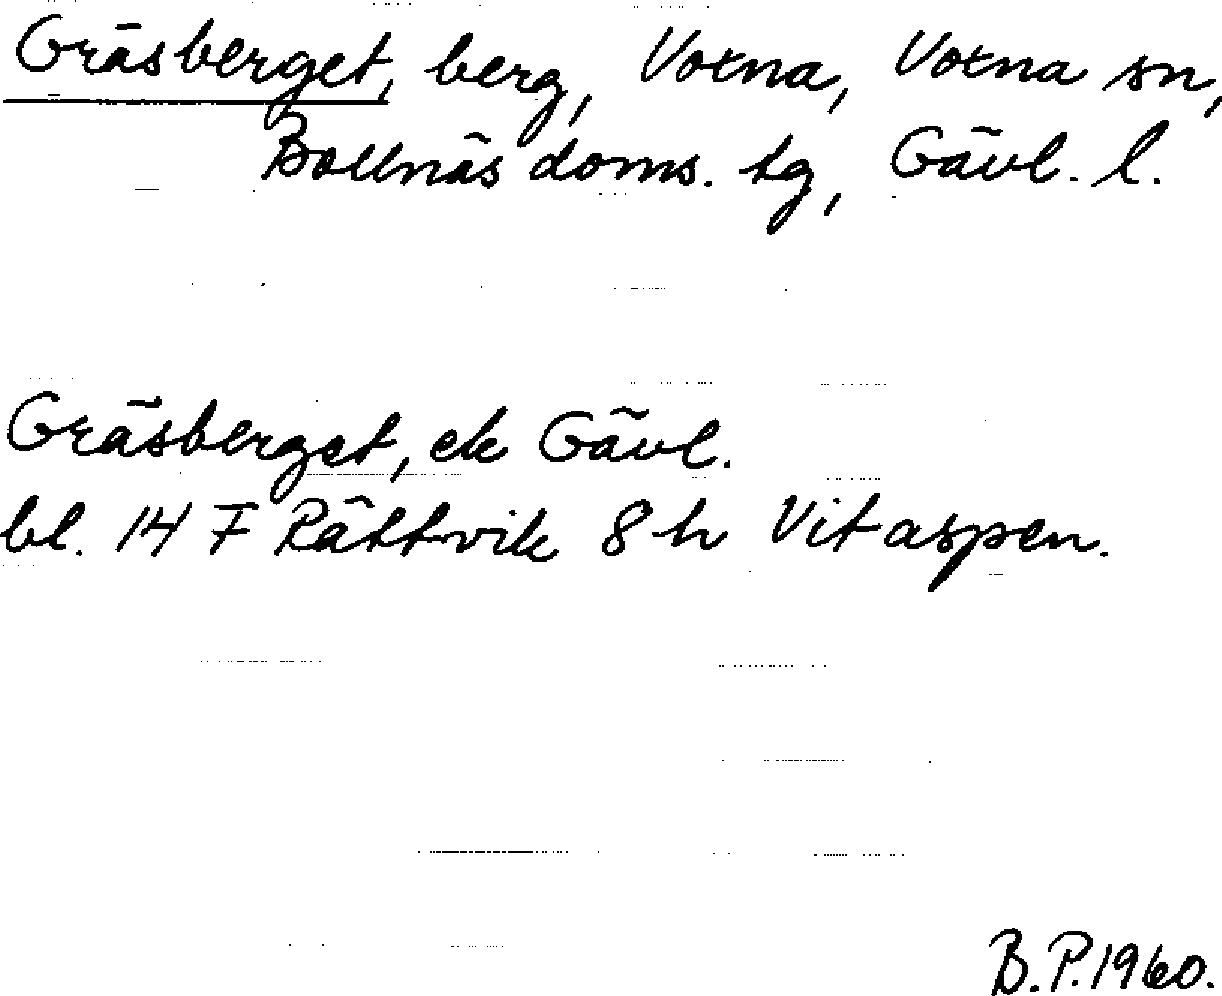 Gräsberget, berg, Voxna, Voxna sn,
Bollnäs doms. tg, Gävl. l.
Gräsberget, ek Gävl.
bl. 14 F Rättvik 8 h Vitaspen.
B.P. 1960.